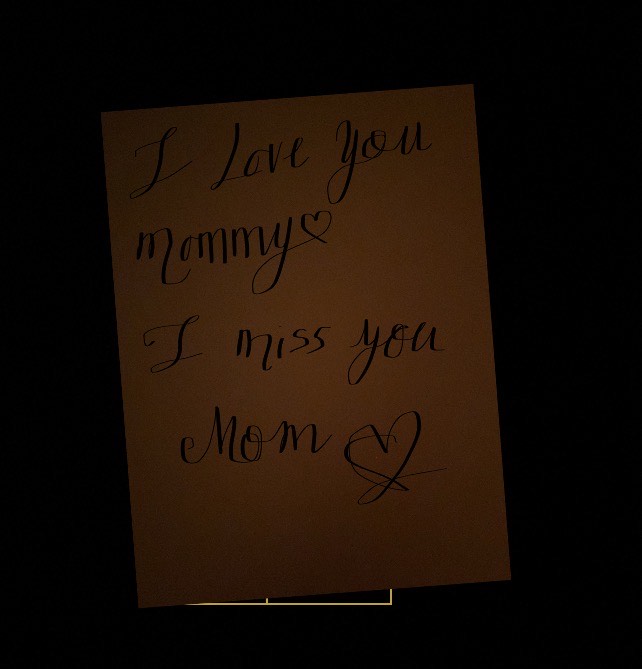 I Love You
mommy♡
I miss you
Mom ♡